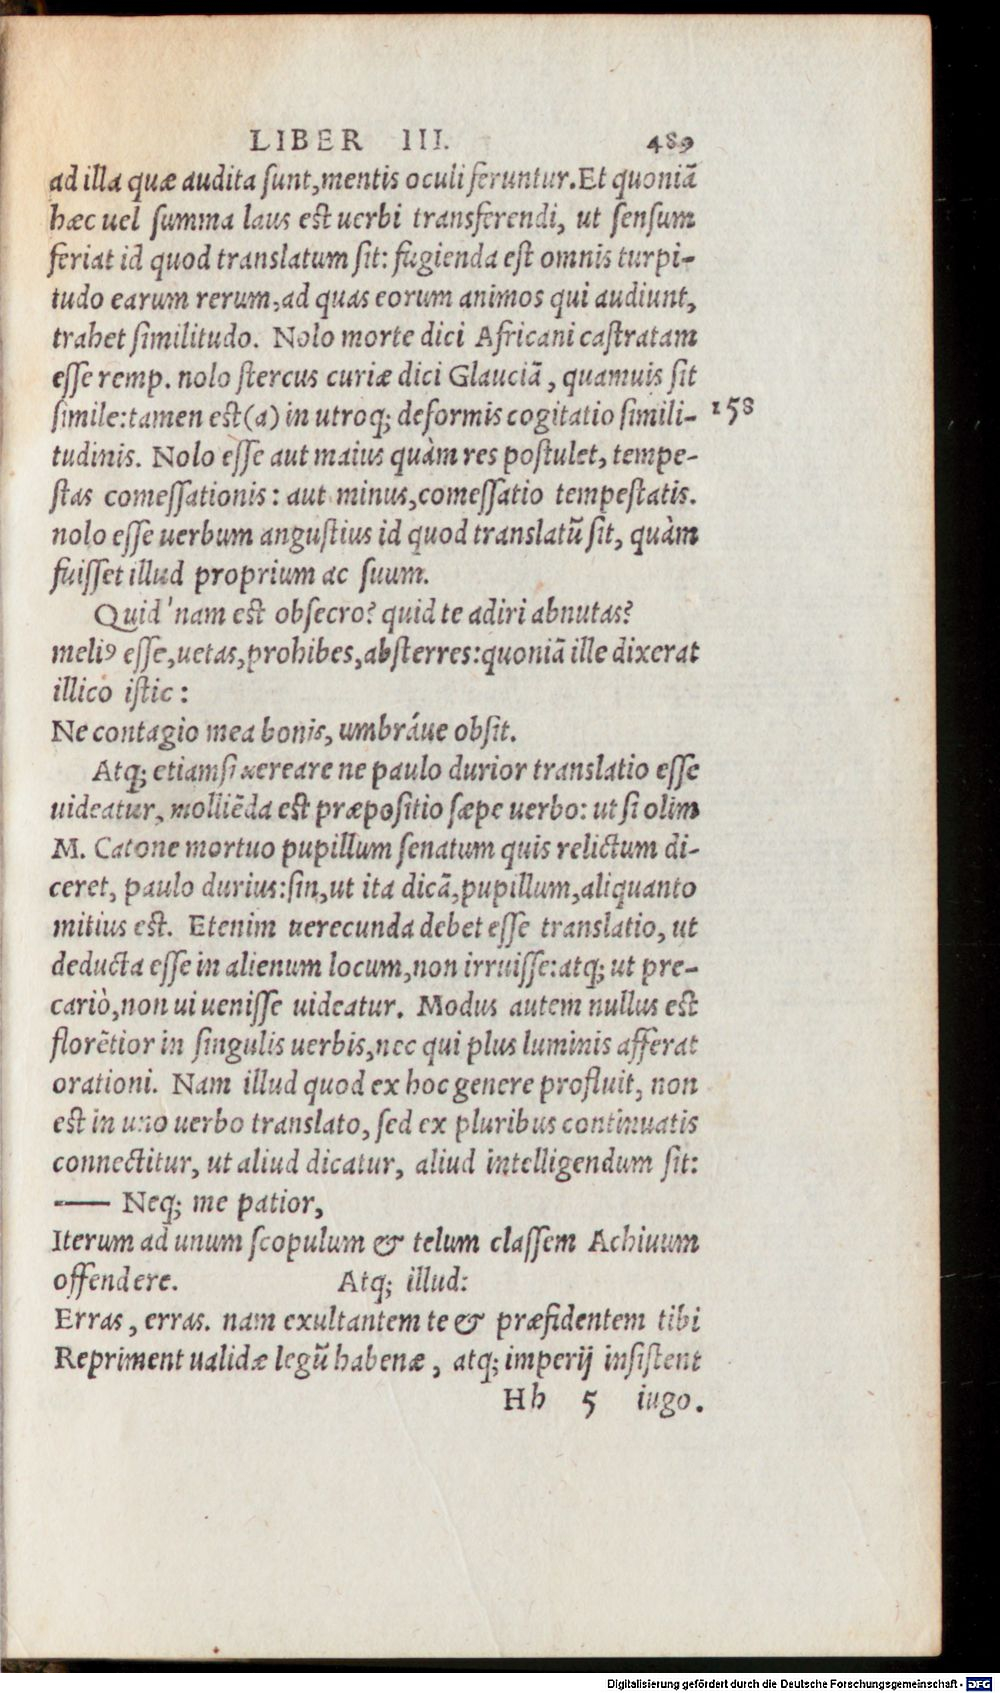 LIBER III. 489
ad illa quæ audita ſunt,mentis oculi feruntur.Et quoniã
hæc uel ſumma laus est uerbi transferendi, ut ſenſum
feriat id quod translatum ſit: fugienda eſt omnis turpi-
tudo earum rerum,ad quas eorum animos qui audiunt,
trahet ſimilitudo. Nolo morte dici Africani caſtratam
eſſe remp. nolo ſtercus curiæ dici Glauciã, quamuis ſit
ſimile:tamen est(a) in utroq; deformis cogitatio ſimili- 158
tudinis. Nolo eſſe aut maius quàm res poſtulet, tempe-
ſtas comeſſationis: aut minus,comeſſatio tempeſtatis.
nolo eſſe uerbum anguſtius id quod translatũ ſit, quàm
fuiſſet illud proprium ac ſuum.
Quid'nam est obſecro? quid te adiri abnutas?
meliꝰ eſſe,uetas,prohibes,abſterres:quoniã ille dixerat
illico iſtic:
Ne contagio mea bonis, umbráue obſit.
Atq; etiamſi uereare ne paulo durior translatio eſſe
uideatur, molliẽda est præpoſitio ſæpe uerbo: ut ſi olim
M. Catone mortuo pupillum ſenatum quis relictum di-
ceret, paulo durius:ſin,ut ita dicã,pupillum,aliquanto
mitius est. Etenim uerecunda debet eſſe translatio, ut
deducta eſſe in alienum locum,non irruiſſe:atq; ut pre-
cariò,non ui ueniſſe uideatur. Modus autem nullus est
florẽtior in ſingulis uerbis,nec qui plus luminis afferat
orationi. Nam illud quod ex hoc genere profluit, non
est in uno uerbo translato, ſed ex pluribus continuatis
connectitur, ut aliud dicatur, aliud intelligendum ſit:
—— Neq; me patior,
Iterum ad unum ſcopulum & telum claſſem Achiuum
offendere. Atq; illud:
Erras, erras. nam exultantem te & præfidentem tibi
Repriment ualidæ legũ habenæ, atq; imperij inſiſtent
Hh 5 iugo.
Digitalisierung gefördert durch die Deutsche Forschungsgemeinschaft - DFG